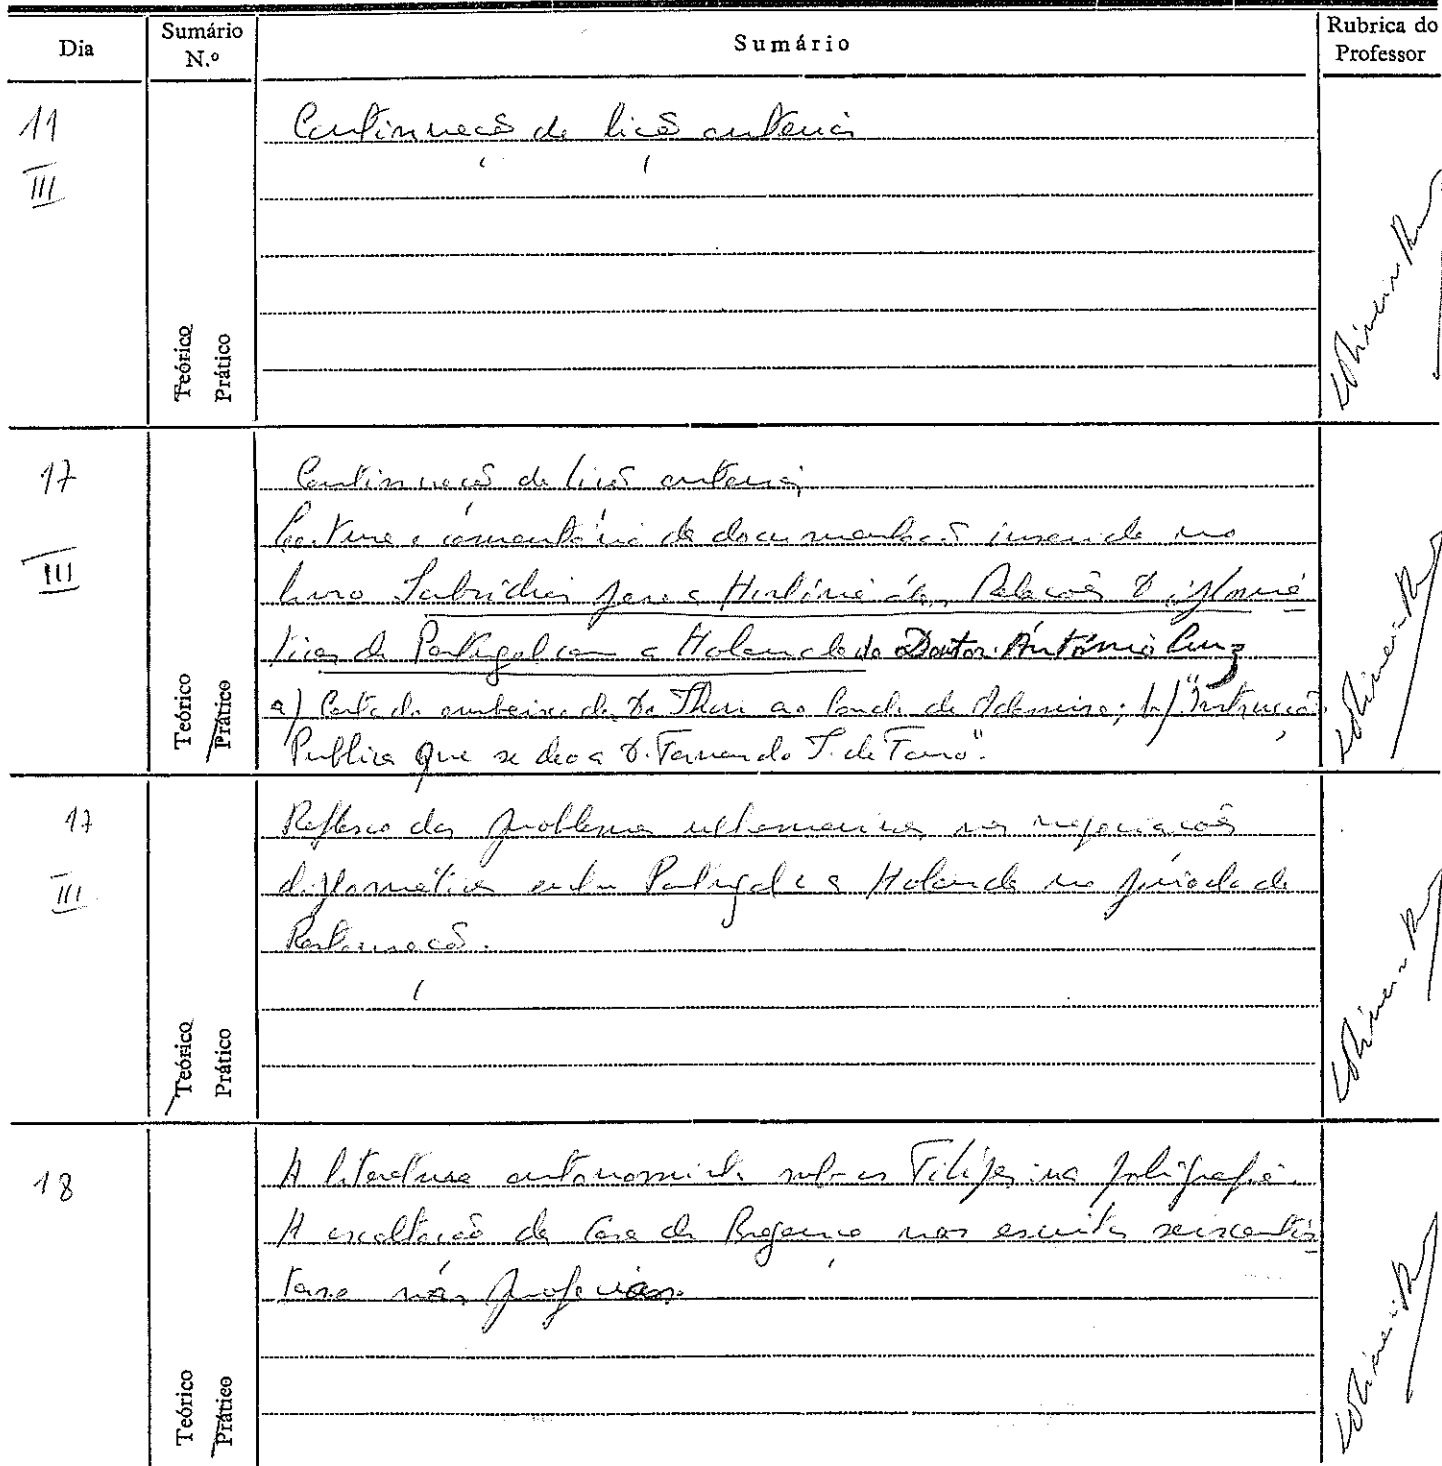 Dia
Sumário
N.º
Sumário
Rubrica do
Professor
11
III
Continuação da lição anterior
Teórico
Prático
17
III
Continuação da lição anterior
Leitura e comentário de documentação inserida no
livro Subsídios para a História das Relações Diplomá
ticas de Portugal com a Holanda do Doutor António Cruz
a) Carta do embaixador De Thou ao Conde de Odemira; b) "Instrucção
Publica que se deo a D. Fernando T. de Faro".
Teórico
Prático
17
III
Reflexo dos problemas ultramarinos nas negociações
diplomáticas entre Portugal e a Holanda no período da
Restauração.
Teórico
Prático
18
A literatura autonomista sob os Filipes: na poligrafia.
A exaltação da Casa de Bragança nos escritos seiscentis
tas e nas profecias.
Teórico
Prático